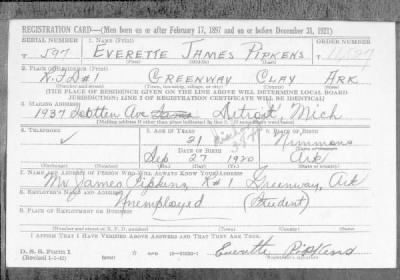 REGISTRATION CARD—(Men born on or after February 17, 1897 and on or before December 31, 1921)
SERIAL NUMBER 1. NAME (Print) ORDER NUMBER
T 597 EVERETTE JAMES PIPKENS
(First) (Middle) (Last)
2. PLACE OF RESIDENCE (Print)
R.F.D #1 GREENWAY CLAY ARK
(Number and street) (Town, township, village, or city) (County) (State)
[THE PLACE OF RESIDENCE GIVEN ON THE LINE ABOVE WILL DETERMINE LOCAL BOARD
JURISDICTION; LINE 2 OF REGISTRATION CERTIFICATE WILL BE IDENTICAL]
3. MAILING ADDRESS
1937 Scotten Ave Detroit Mich
[Mailing address if other than place indicated on line 2. If same insert word same]
4. TELEPHONE 5. AGE IN YEARS 6. PLACE OF BIRTH
✓ 21 Nimmons
DATE OF BIRTH (Town or county)
Sep 27 1920 Ark
(Exchange) (Number) (Mo.) (Day) (Yr.) (State or country)
7. NAME AND ADDRESS OF PERSON WHO WILL ALWAYS KNOW YOUR ADDRESS
Mr James Pipkins R#1 Greenway, Ark
8. EMPLOYER'S NAME AND ADDRESS
Unemployed (Student)
9. PLACE OF EMPLOYMENT OR BUSINESS
(Number and street or R. F. D. number) (Town) (County) (State)
I AFFIRM THAT I HAVE VERIFIED ABOVE ANSWERS AND THAT THEY ARE TRUE.
D. S. S. Form 1
(Revised 1-1-42) (over) Everette Pipkens
(Registrant's signature)